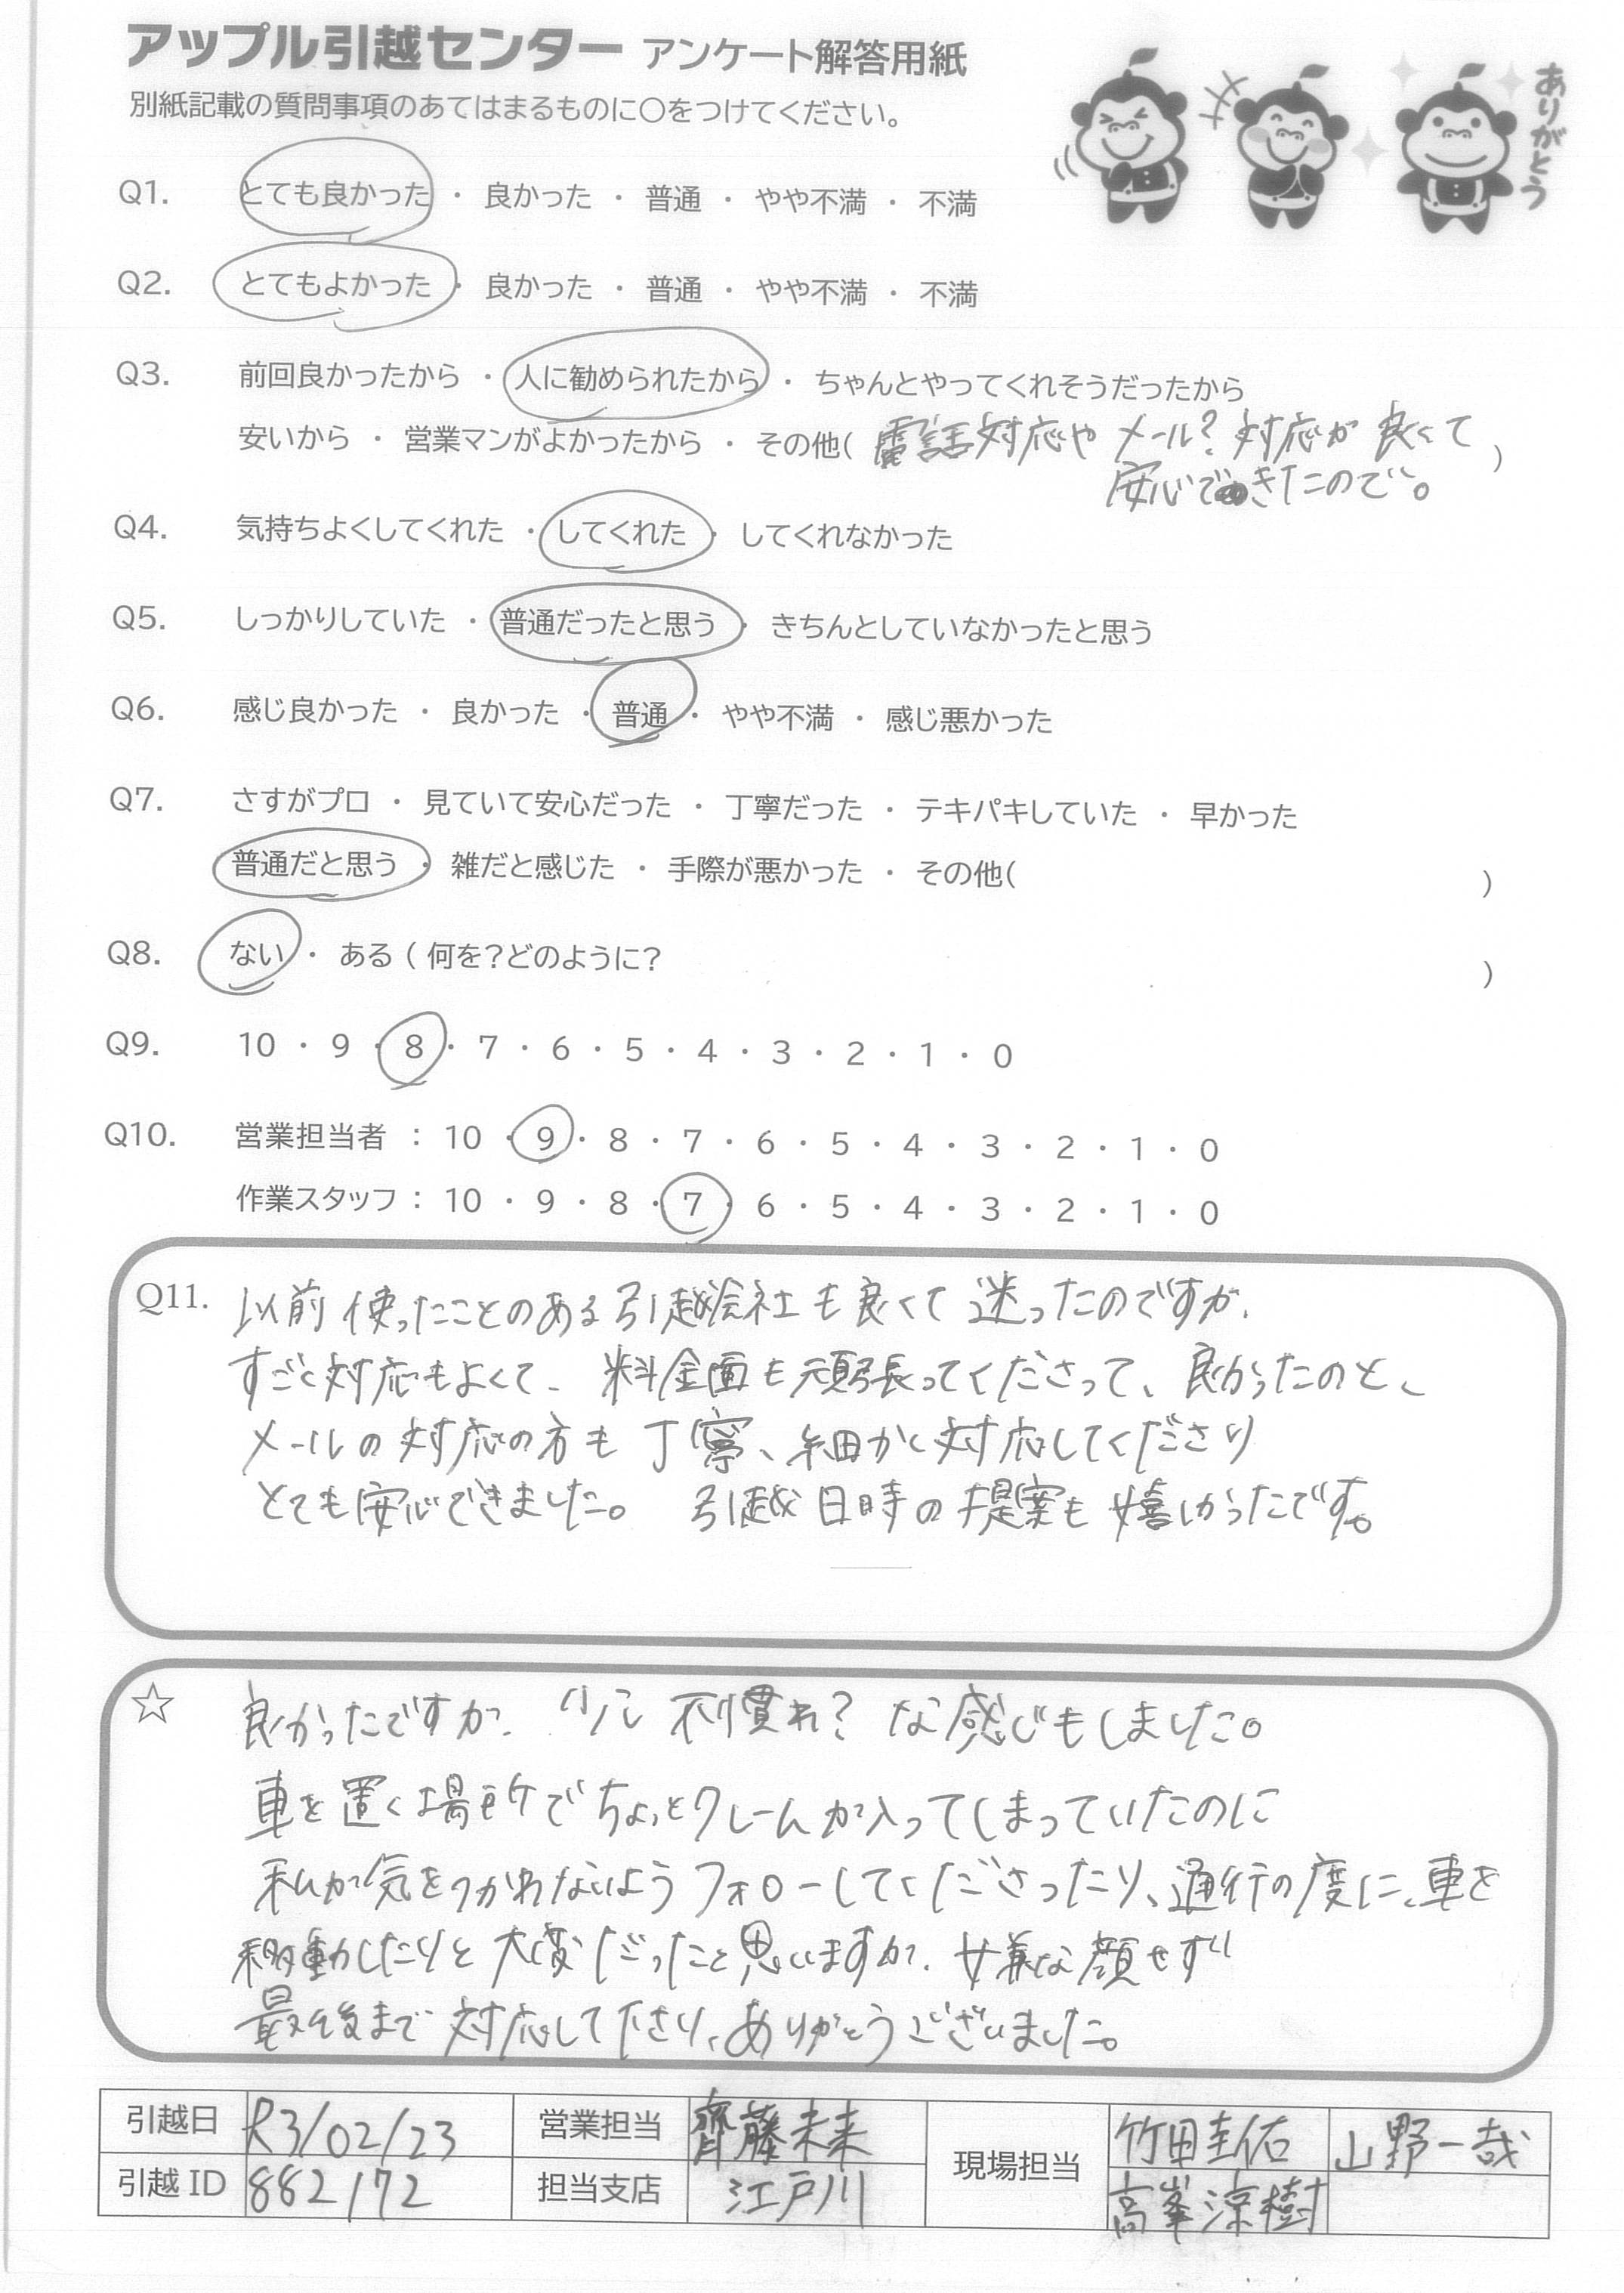 アップル引越センター アンケート解答用紙
別紙記載の質問事項のあてはまるものに〇をつけてください。
ありがとう
Q1. とても良かった ・ 良かった ・ 普通 ・ やや不満 ・ 不満
Q2. とてもよかった ・ 良かった ・ 普通 ・ やや不満 ・ 不満
Q3. 前回良かったから ・ 人に勧められたから ・ ちゃんとやってくれそうだったから
安いから ・ 営業マンがよかったから ・ その他( 電話対応や メール? 対応が 良くて )
安心できたので。
Q4. 気持ちよくしてくれた ・ してくれた ・ してくれなかった
Q5. しっかりしていた ・ 普通だったと思う ・ きちんとしていなかったと思う
Q6. 感じ良かった ・ 良かった ・ 普通 ・ やや不満 ・ 感じ悪かった
Q7. さすがプロ ・ 見ていて安心だった ・ 丁寧だった ・ テキパキしていた ・ 早かった
普通だと思う ・ 雑だと感じた ・ 手際が悪かった ・ その他( )
Q8. ない ・ ある ( 何を?どのように? )
Q9. 10 ・ 9 ・ 8 ・ 7 ・ 6 ・ 5 ・ 4 ・ 3 ・ 2 ・ 1 ・ 0
Q10. 営業担当者 : 10 ・ 9 ・ 8 ・ 7 ・ 6 ・ 5 ・ 4 ・ 3 ・ 2 ・ 1 ・ 0
作業スタッフ : 10 ・ 9 ・ 8 ・ 7 ・ 6 ・ 5 ・ 4 ・ 3 ・ 2 ・ 1 ・ 0
Q11. 以前使ったことのある引越会社も良くて迷ったのですが、
すごく対応もよくて、料金面も頑張ってくださって、良かったのと、
メールの対応の方も丁寧、細かく対応してくださり
とても安心できました。 引越日時の提案も嬉しかったです。
☆ 良かったですが、少し不慣れ?な感じもしました。
車を置く場所でちょっとクレームが入ってしまっていたのに
私が気をつかわないようフォローしてくださったり、通行の度に、車を
移動したりと大変だったと思いますが、女嫌な顔せず
最後まで対応して下さり、ありがとうございました。
引越日 R3/02/23 営業担当 齊藤未来 現場担当 竹田圭佑 山野一哉
引越 ID 882172 担当支店 江戸川 高峯涼樹